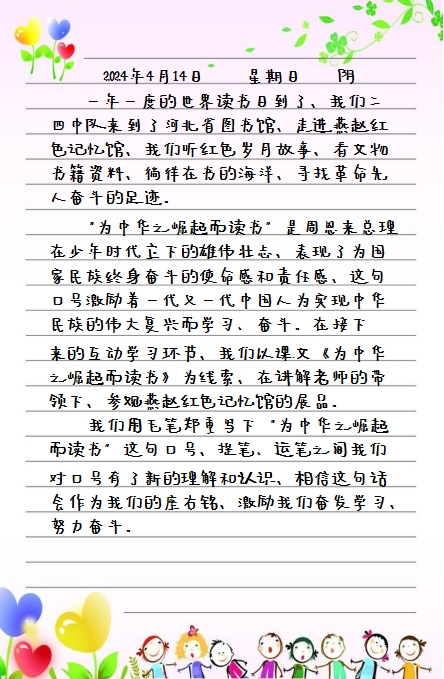 2024年4月14日 星期日 阴
一年一度的世界读书日到了、我们二
四中队来到了河北省图书馆、走进燕赵红
色记忆馆、我们听红色岁月故事、看文物
书籍资料、徜徉在书的海洋、寻找革命先
人奋斗的足迹。
“为中华之崛起而读书”是周恩来总理
在少年时代立下的雄伟壮志、表现了为国
家民族终身奋斗的使命感和责任感、这句
口号激励着一代又一代中国人为实现中华
民族的伟大复兴而学习、奋斗。在接下
来的互动学习环节、我们以课文《为中华
之崛起而读书》为线索、在讲解老师的带
领下、参观燕赵红色记忆馆的展品。
我们用毛笔郑重写下“为中华之崛起
而读书”这句口号、提笔、运笔之间我们
对口号有了新的理解和认识、相信这句话
会作为我们的座右铭、激励我们奋发学习、
努力奋斗。